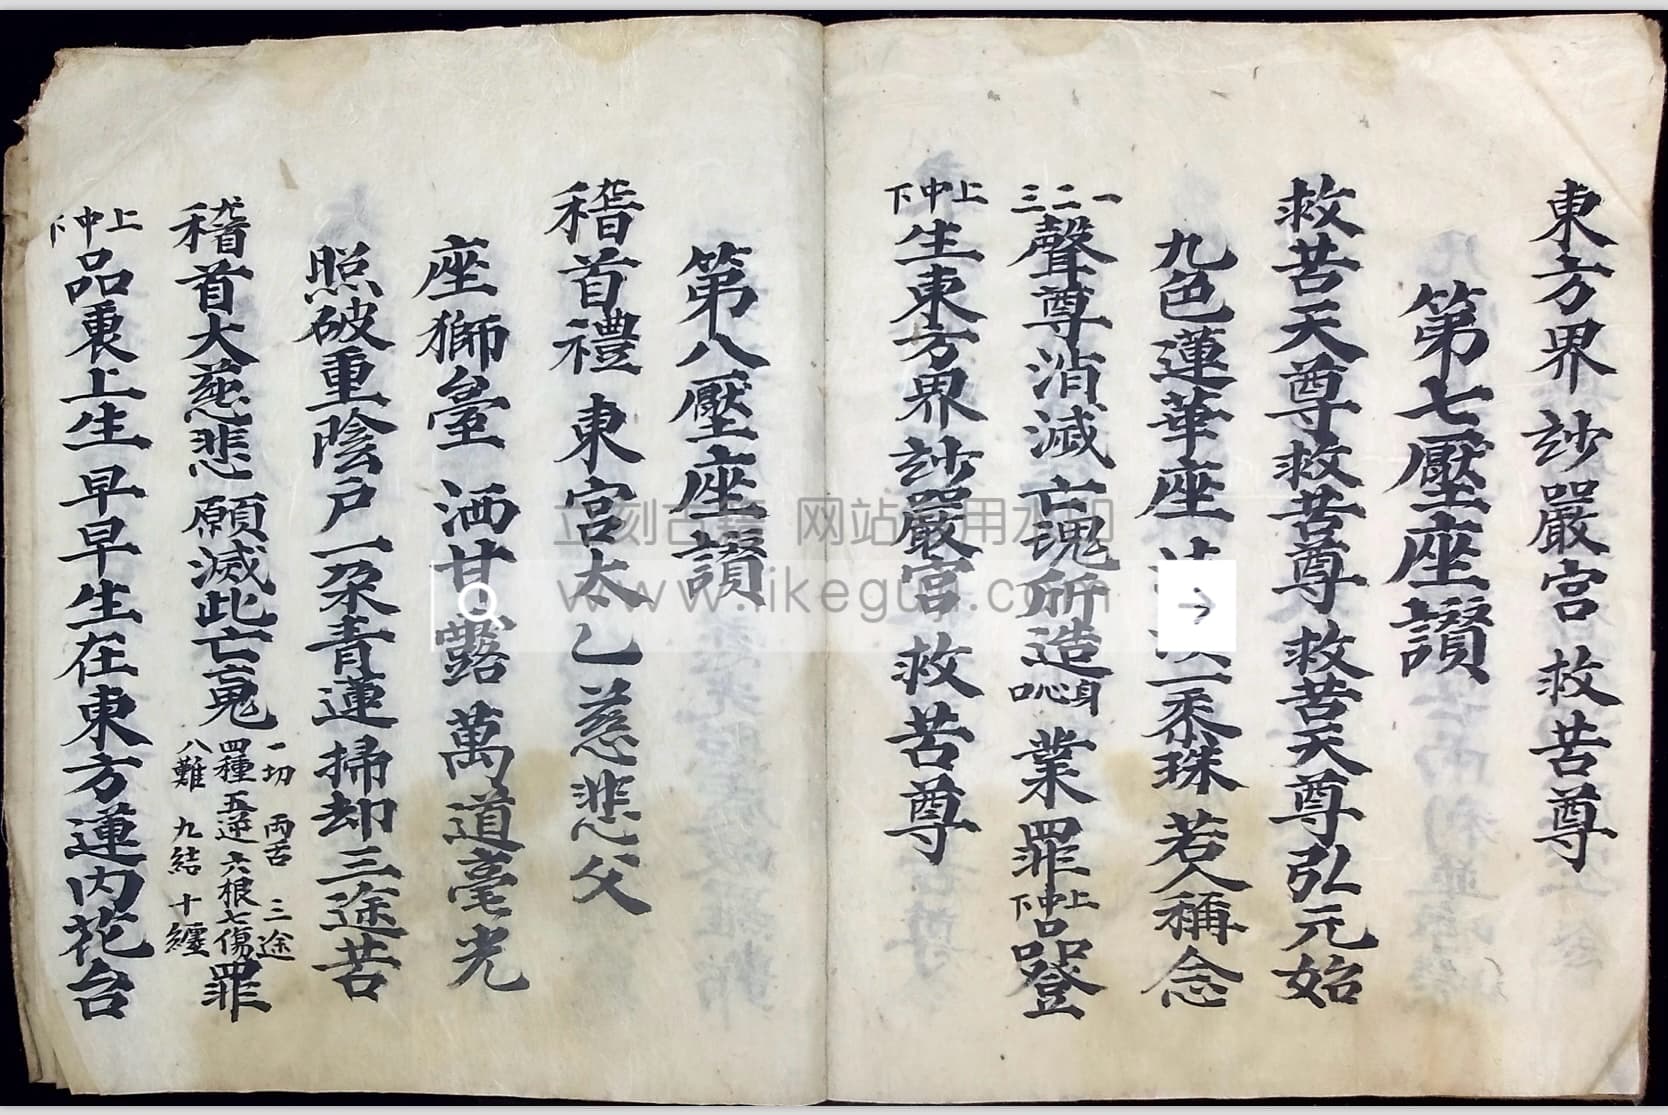 東方界 玅嚴宮 救苦尊
第七壓座讚
救苦天尊救苦尊 救苦天尊弘元始
九色蓮華座 一黍珠 若人稱念
一二三聲尊消滅亡魂所造身心口業罪上中下品登
上中下生東方界玅嚴宮 救苦尊
第八壓座讚
稽首禮 東宮太乙慈悲父
座獅臺 洒甘露 萬道毫光
照破重陰户一朶青蓮掃却三途苦
稽首大慈悲 願滅此亡䰟一切 兩舌 三途 四種 五逆 六根 七傷 八難 九結 十纏罪
上中下品裏上生 早早早生在東方蓮内花台
立刻古籍 网站 用水印
www.likeguji.com